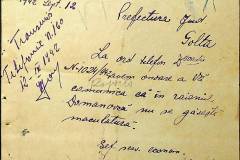 1942 Sept 12
Prefectura Jud.
Golta
Transmis
Telefonic N. 160
12-IX-1942
La ord. telefon
N. 1024 avem onoare a Vă
comunica că în raionul
Domanovca nu se găsește
maculatură.
Șef serv. econom.